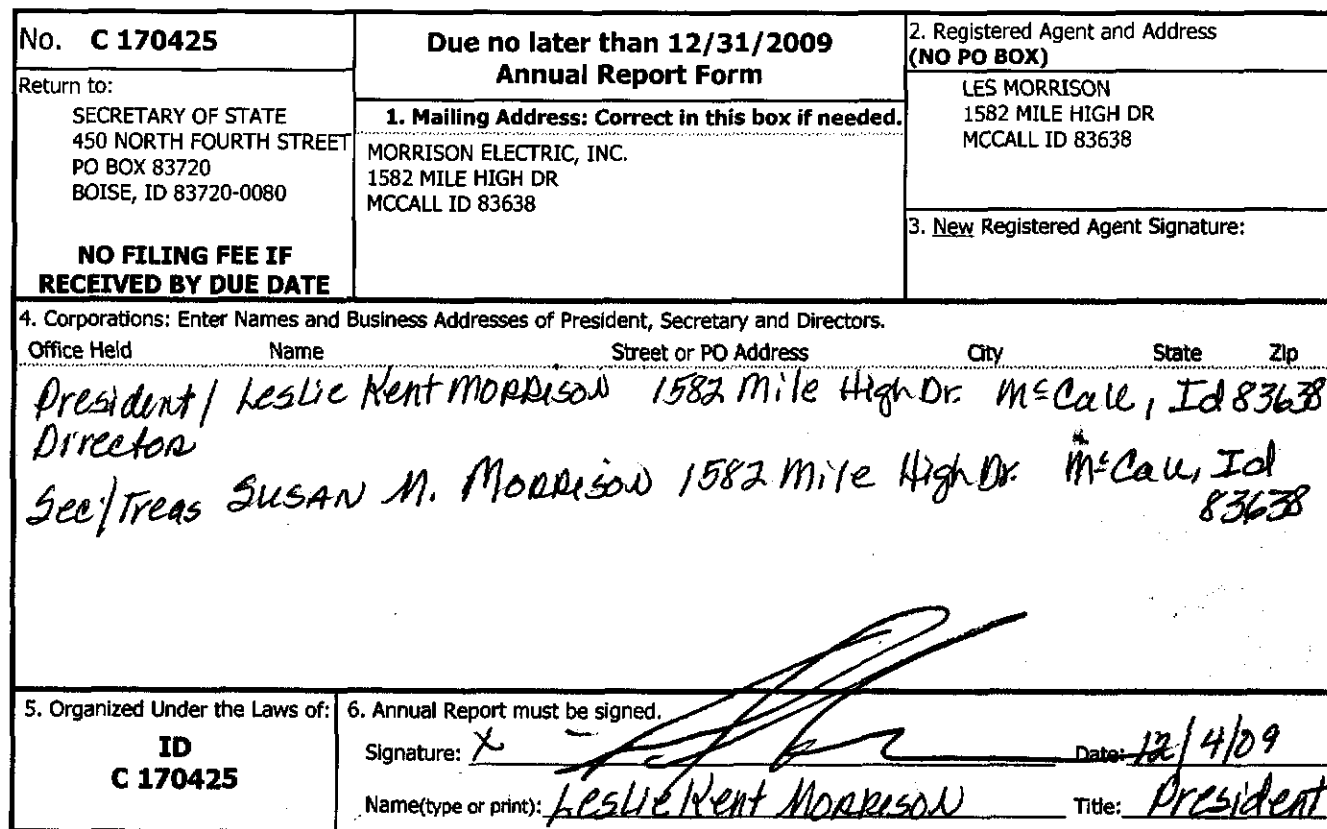 No. C 170425
Return to:
SECRETARY OF STATE
450 NORTH FOURTH STREET
PO BOX 83720
BOISE, ID 83720-0080
NO FILING FEE IF
RECEIVED BY DUE DATE
Due no later than 12/31/2009
Annual Report Form
1. Mailing Address: Correct in this box if needed.
MORRISON ELECTRIC, INC.
1582 MILE HIGH DR
MCCALL ID 83638
2. Registered Agent and Address
(NO PO BOX)
LES MORRISON
1582 MILE HIGH DR
MCCALL ID 83638
3. New Registered Agent Signature:
4. Corporations: Enter Names and Business Addresses of President, Secretary and Directors.
Office Held Name Street or PO Address City State Zip
President/ Leslie Kent Morrison 1582 Mile High Dr. McCall, Id 83638
Director
Sec/Treas Susan M. Morrison 1582 Mile High Dr. McCall, Id
83638
5. Organized Under the Laws of:
ID
C 170425
6. Annual Report must be signed.
Signature: X Date: 12/4/09
Name(type or print): Leslie Kent Morrison Title: President